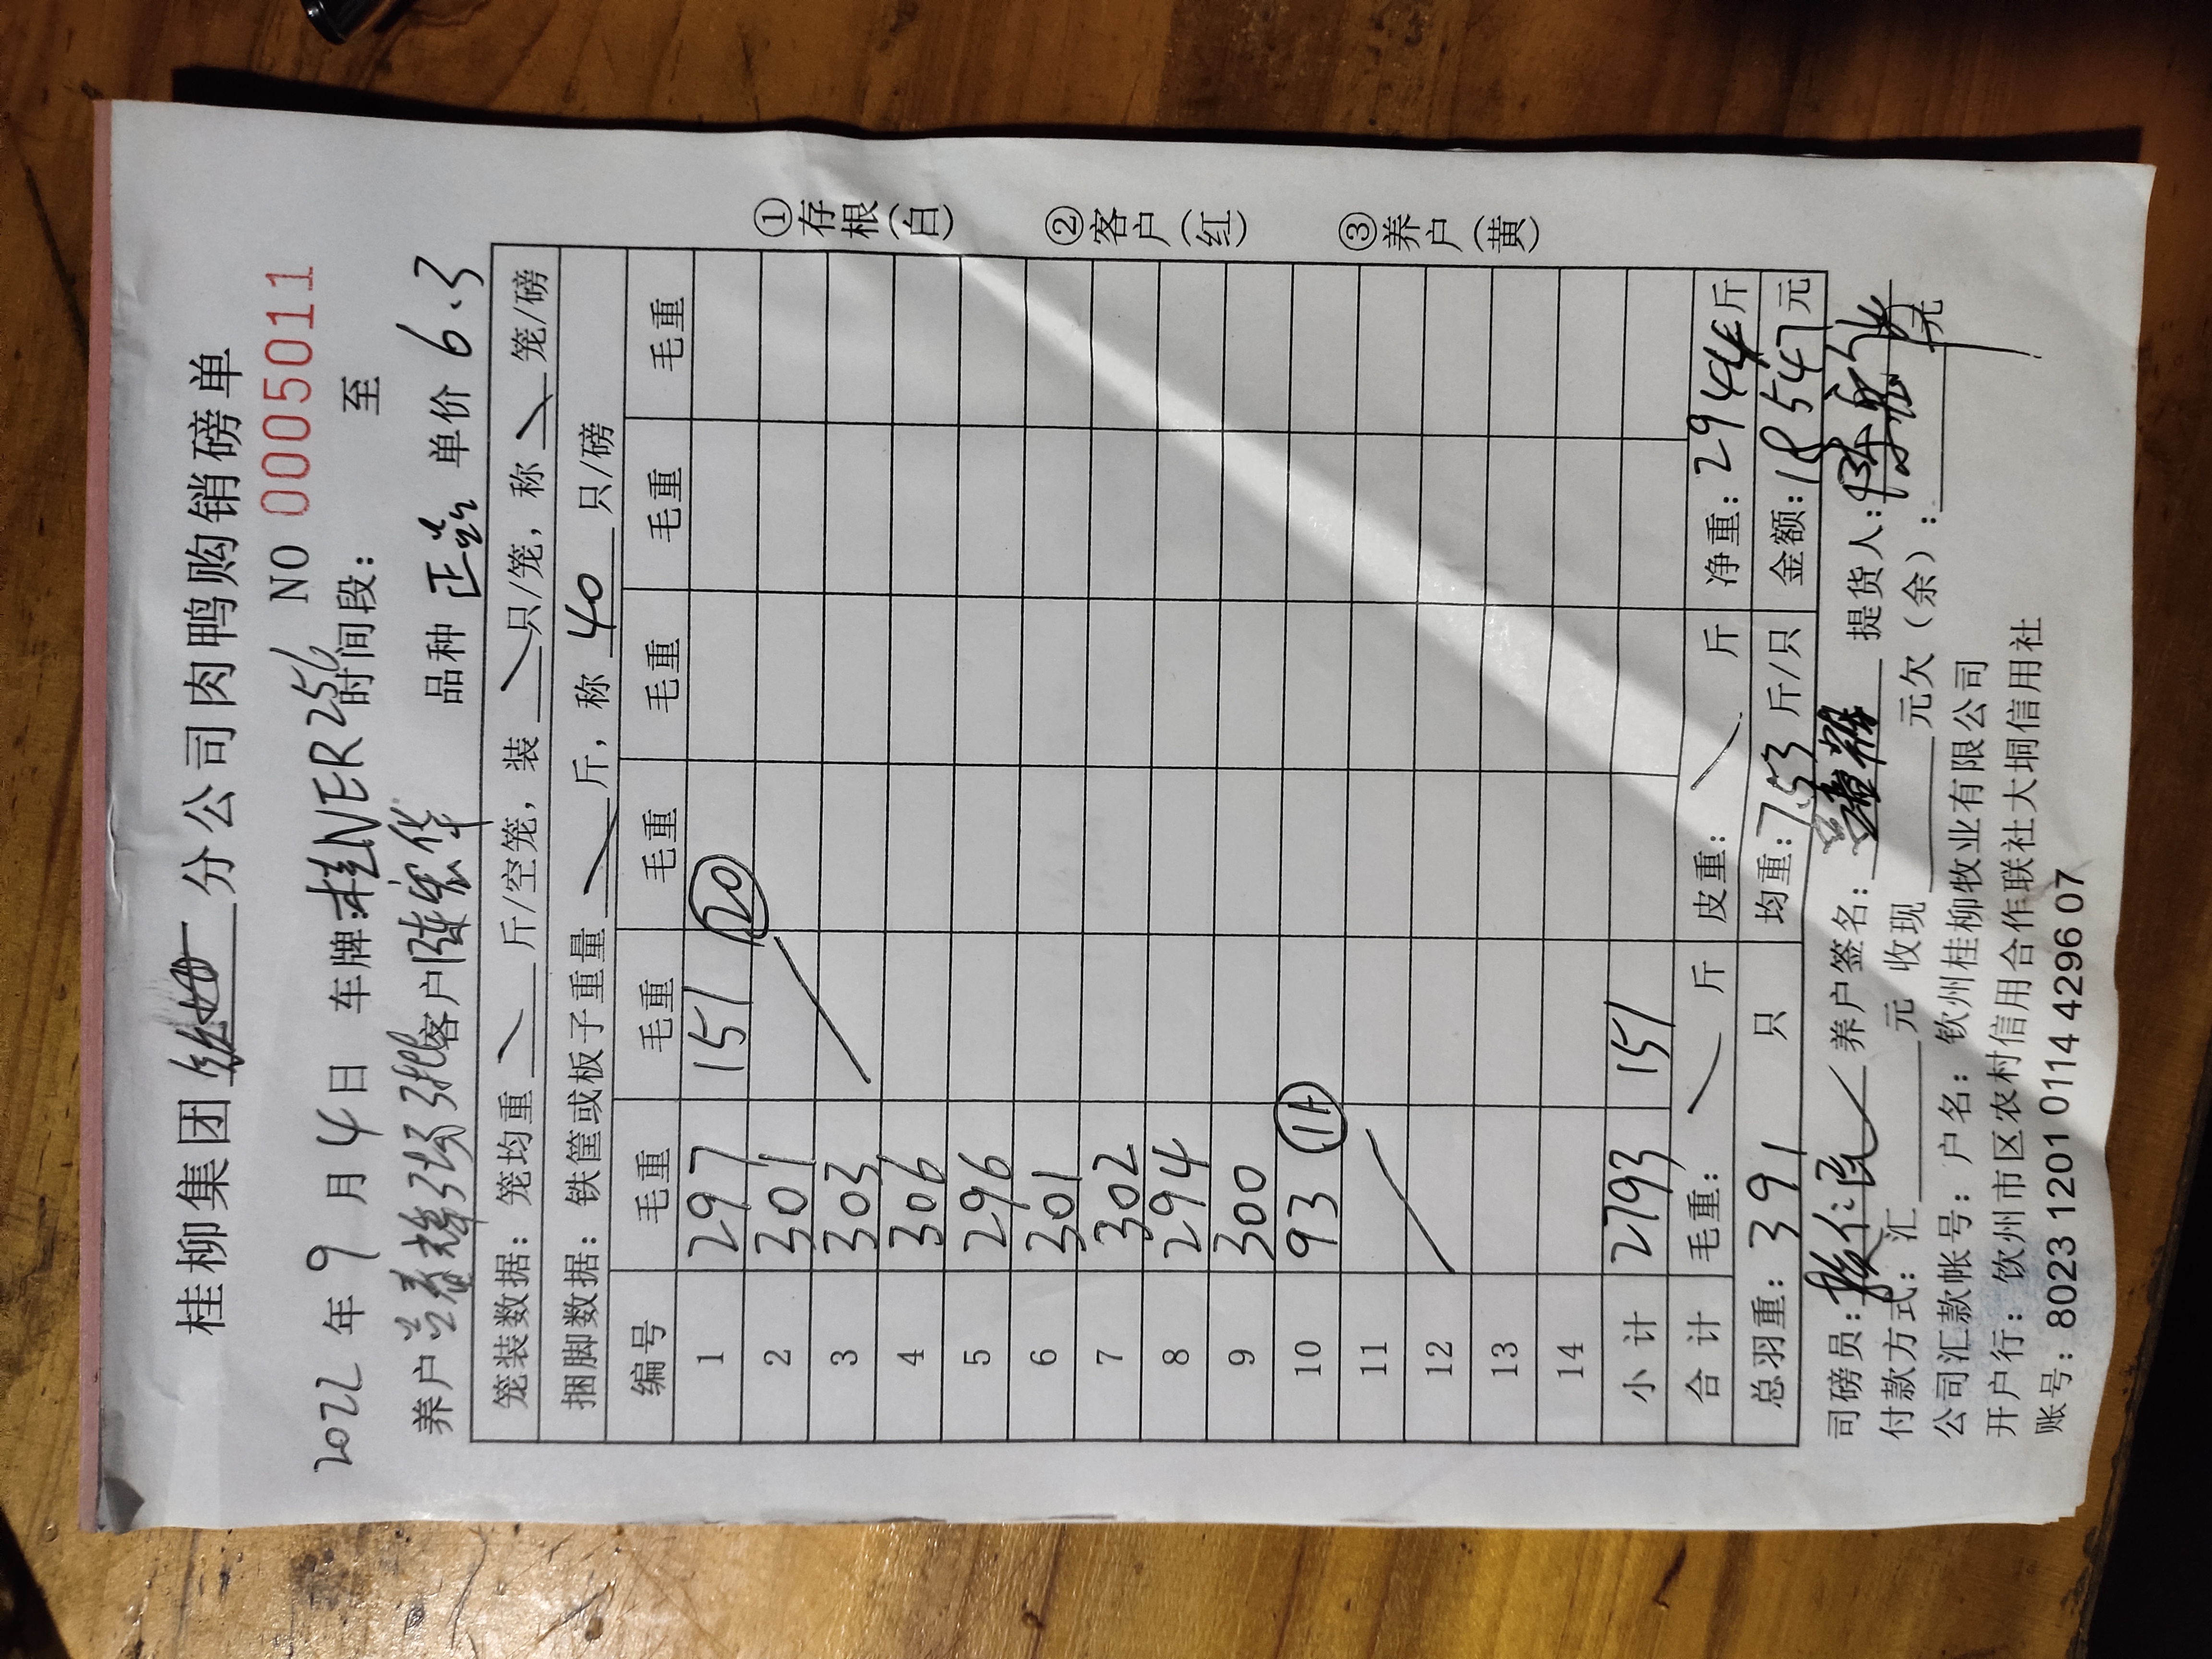 桂柳集团 分公司肉鸭购销磅单
NO 0005011
2022年9月4日 车牌:桂NER256 时间段: 至
养户 客户 陈宏华 品种 正品 单价 6.3
笼装数据:笼均重 斤/空笼,装 只/笼,称 笼/磅
捆脚数据:铁筐或板子重量 斤,称 40 只/磅
编号 毛重 毛重 毛重 毛重 毛重 毛重
1 297 151 20
2 301
3 303
4 306
5 296
6 301
7 302
8 294
9 300
10 93 11
11
12
13
14
小计 2793 151
合计 毛重: 斤 皮重: 斤 净重:2944斤
总羽重:391 只 均重:7.53 斤/只 金额:18547元
①存根(白)
②客户(红)
③养户(黄)
司磅员: 养户签名: 提货人:
付款方式:汇 元 收现 元欠(余): 元
公司汇款帐号:户名:钦州桂柳牧业有限公司
开户行:钦州市区农村信用合作联社大垌信用社
账号:8023 1201 0114 4296 07